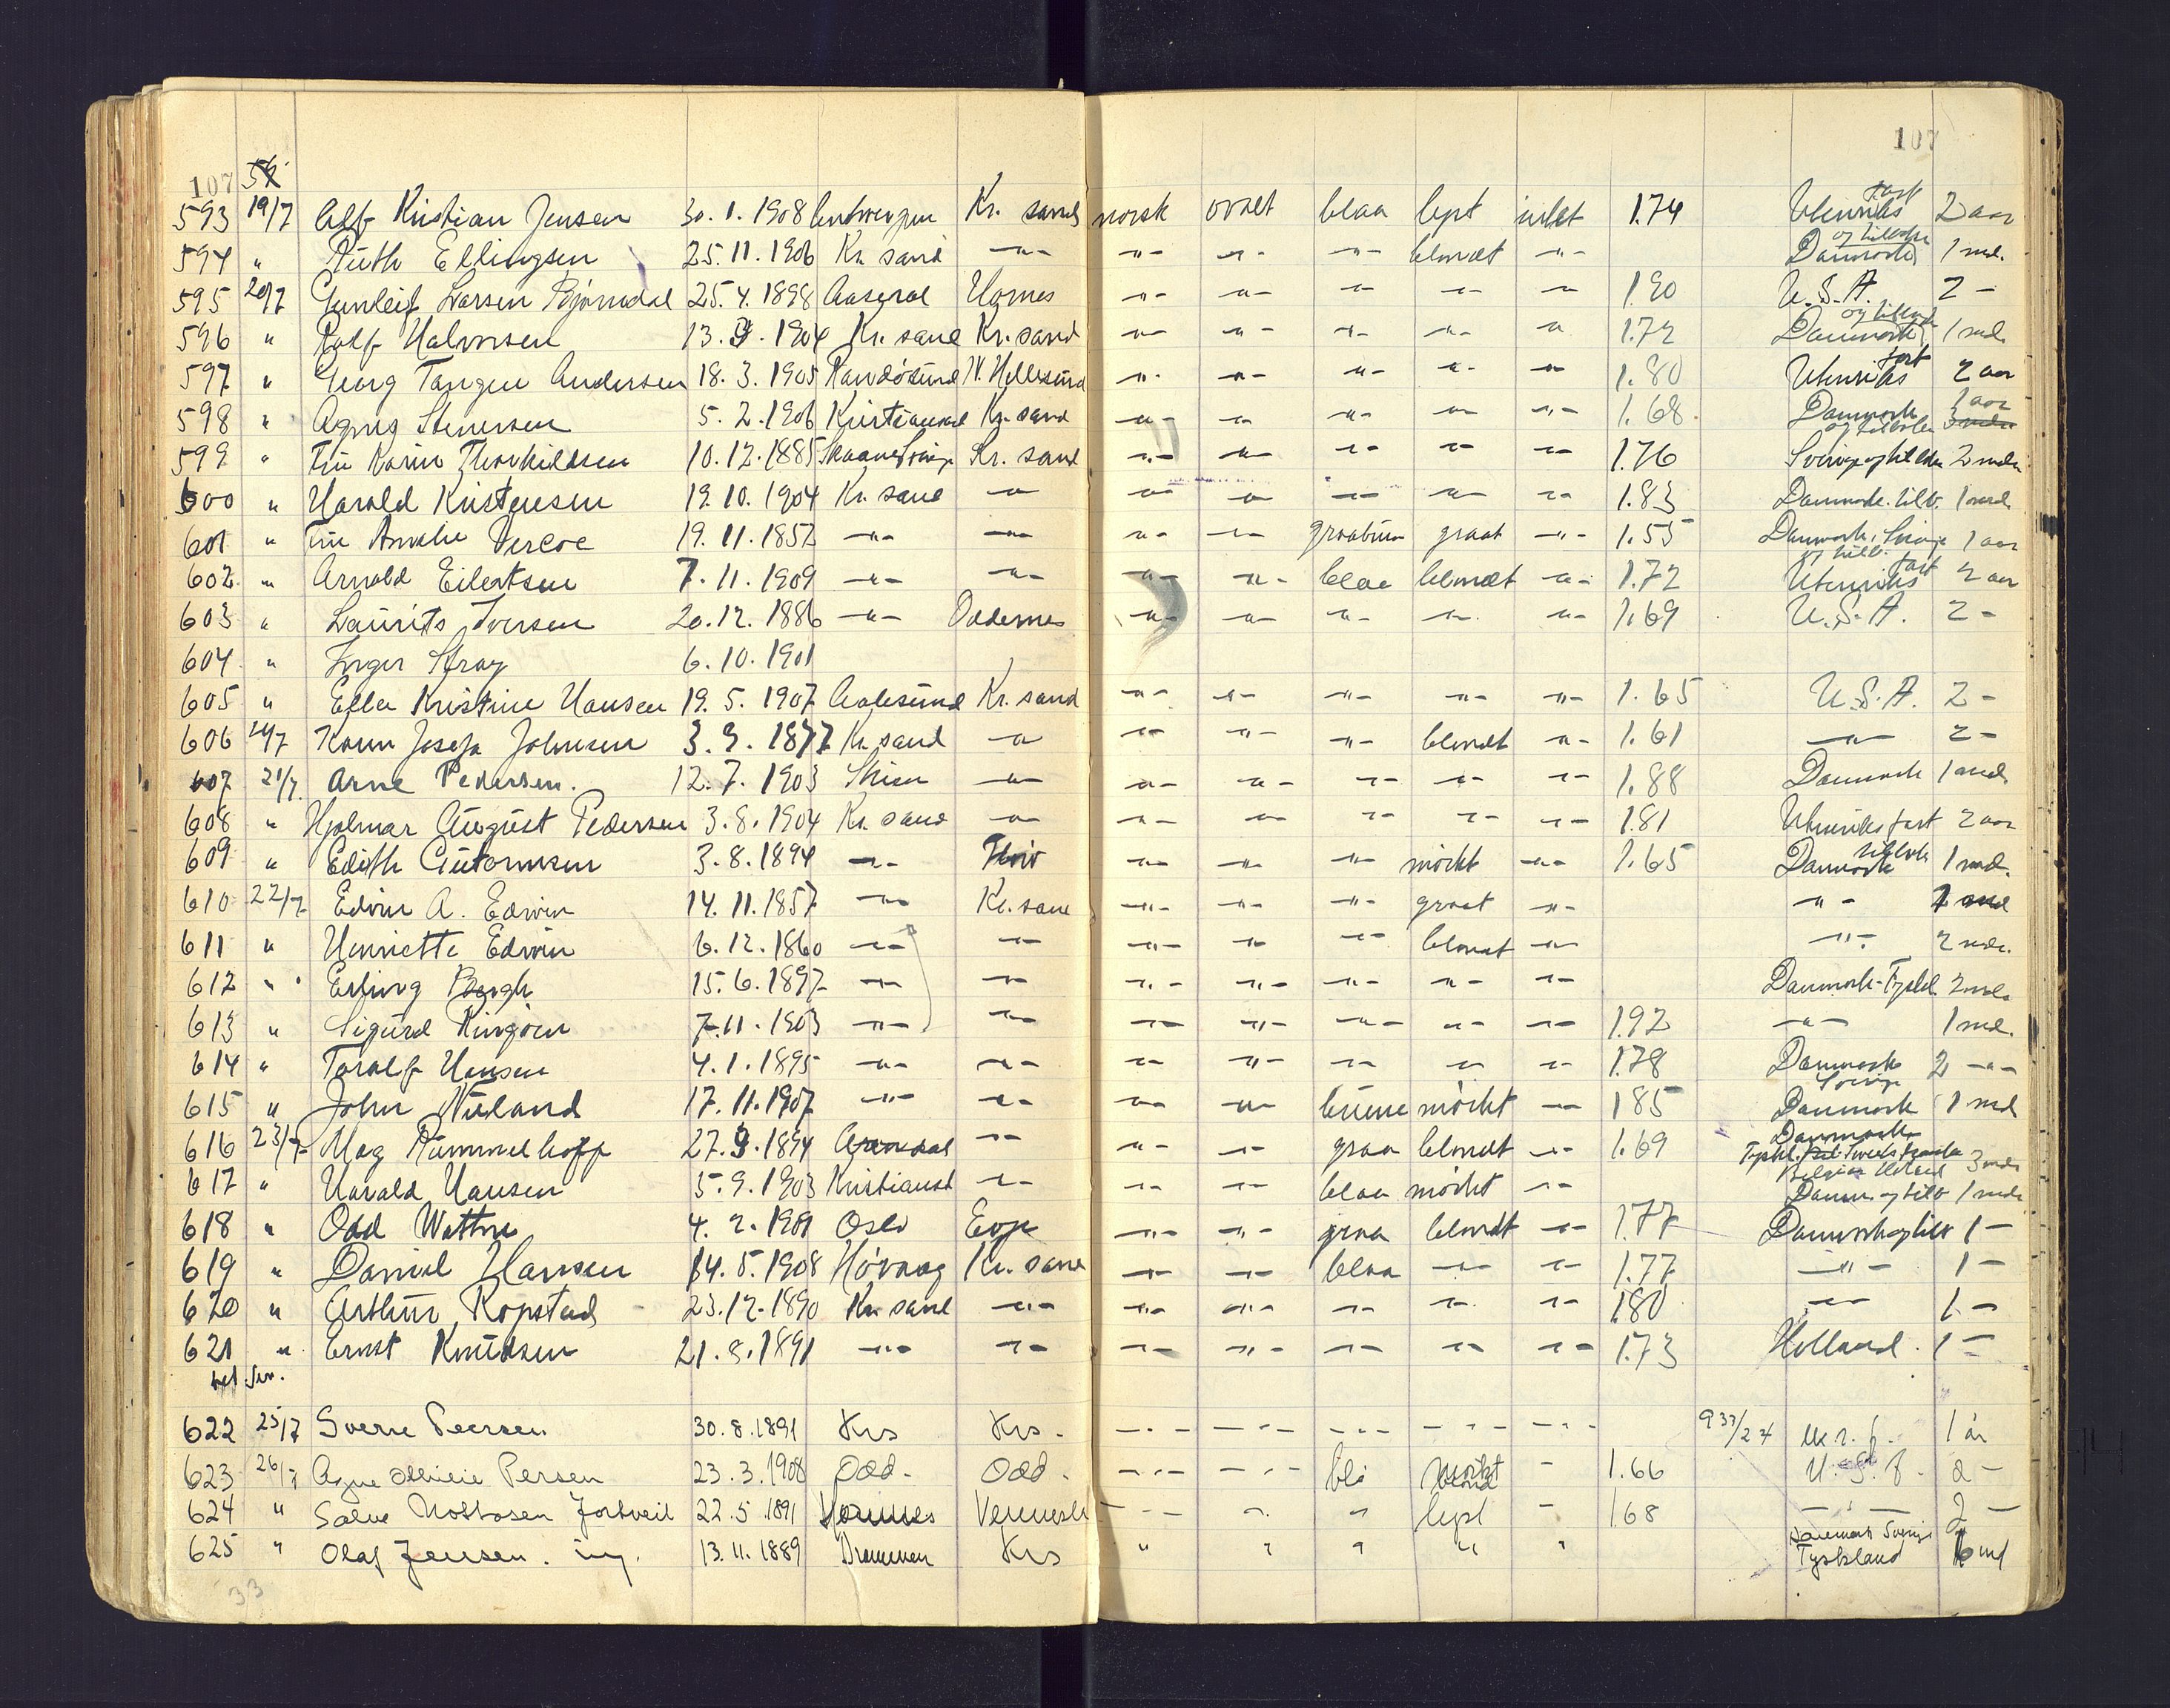 107 107
593 19/7 Alf Kristian Jensen 30.1.1908 Antwerpen Kr. sand norsk ovalt blaa lyst intet 1.74 Utenriks fart 2 aar
594 " Ruth Ellingsen 25.11.1906 Kr. sand -"- -"- -"- -"- blondt -"- Danmark 1 md.
595 20/7 Gunleif Larsen Bjørndal 25.4.1898 Aaseral Hornes -"- -"- -"- -"- -"- 1.90 U.S.A. 2 -
596 " Rolf Halvorsen 13.9.1904 Kr. sand Kr. sand -"- -"- -"- -"- -"- 1.72 Danmark 1 md.
597 " Georg Tangen Andersen 18.3.1905 Randösund N. Hellesund -"- -"- -"- -"- -"- 1.80 Utenriks fart 2 aar
598 " Agnes Stenersen 5.2.1906 Kristiansand Kr. sand -"- -"- -"- -"- -"- 1.68 Danmark og tilbake 1 aar
599 " Fru Karin Thorkildsen 10.12.1885 Skaane Kr. sand -"- -"- -"- -"- -"- 1.76 Sverige og tilbake 2 mdr
600 " Harald Kristensen 19.10.1904 Kr. sand -"- -"- -"- -"- -"- -"- 1.83 Danmark. tilb. 1 md
601 " Fru Amalie Vercoe 19.11.1852 -"- -"- -"- -"- graabrun graat -"- 1.55 Danmark, Sverige og tilb. 1 aar
602 " Arnold Eilertsen 7.11.1909 -"- -"- -"- -"- blaa blondt -"- 1.72 Utenriks fart 2 aar
603 " Laurits Iversen 20.12.1886 -"- Oddernes -"- -"- -"- -"- -"- 1.69 U.S.A. 2 -
604 " Inger Stray 6.10.1901
605 " Ella Kristine Hansen 19.5.1907 Aalesund Kr. sand -"- -"- -"- -"- -"- 1.65 U.S.A. 2 -
606 20/7 Karen Josefa Johnsen 3.9.1877 Kr. sand -"- -"- -"- -"- blondt -"- 1.61 -"- 2 -
607 21/7 Arne Pedersen. 12.7.1903 Skien -"- -"- -"- -"- -"- -"- 1.88 Danmark 1 md
608 " Hjalmar August Pedersen 3.8.1904 Kr. sand -"- -"- -"- -"- -"- -"- 1.81 Utenriks fart 2 aar
609 " Edith Guttormsen 3.8.1894 -"- -"- -"- -"- mörkt -"- 1.65 Danmark tilbake 1 md.
610 22/7 Edvin A. Edwin 14.11.1857 -"- Kr. sand -"- -"- -"- graat -"- -"-
611 " Henriette Edwin 6.12.1860 -"- -"- -"- -"- -"- blondt -"- -"- 2 mdr.
612 " Erling Bergh 15.6.1897 -"- -"- -"- -"- -"- -"- -"- Danmark-Tyskl. 2 mdr
613 " Sigurd Ringöen 7.11.1903 -"- -"- -"- -"- -"- -"- -"- 1.92 -"- 1 md.
614 " Toralf Hansen 4.1.1895 -"- -"- -"- -"- -"- -"- -"- 1.78 Danmark Sverige 2 -"-
615 " John Nuland 17.11.1907 -"- -"- -"- -"- brune mörkt -"- 1.85 Danmark 1 md
616 23/7 Mag Rummelhoff 27.9.1894 Arendal -"- -"- -"- graa blondt -"- 1.69 Danmark Tyskl. Belgia Holland 3 mdr
617 " Harald Hansen 5.9.1903 Kristiansd -"- -"- -"- blaa mörkt -"- Danm. og tilb 1 md
618 " Odd Wattne 4.2.1901 Oslo Evje -"- -"- graa blondt -"- 1.77 Danmark og tilb 1 -
619 " Daniel Hansen 14.5.1908 Hövaag Kr. sand -"- -"- blaa -"- -"- 1.77 -"- 1 -
620 " Arthur Ropstad 23.12.1890 Kr. sand -"- -"- -"- -"- -"- -"- 1.80 -"- 1 -
621 " Ernst Knutsen 21.8.1891 -"- -"- -"- -"- -"- -"- -"- 1.73 Holland. 1 -
622 25/7 Sverre Peersen 30.8.1891 Krs Krs. -"- -"- -"- -"- -"- 933/27 1 år
623 26/7 Persen 23.3.1908 Odd. Odd. -"- -"- blå blond - 1.66 U.S.A. 2 -
624 " Salve Fortveit 22.5.1891 Vennesla -"- " " lyst - 1.68 -"- 2 -
625 " Olaf Jensen. ing. 13.11.1889 Drammen Krs " " " " " Danmark Sverige Tyskland 6 md
33